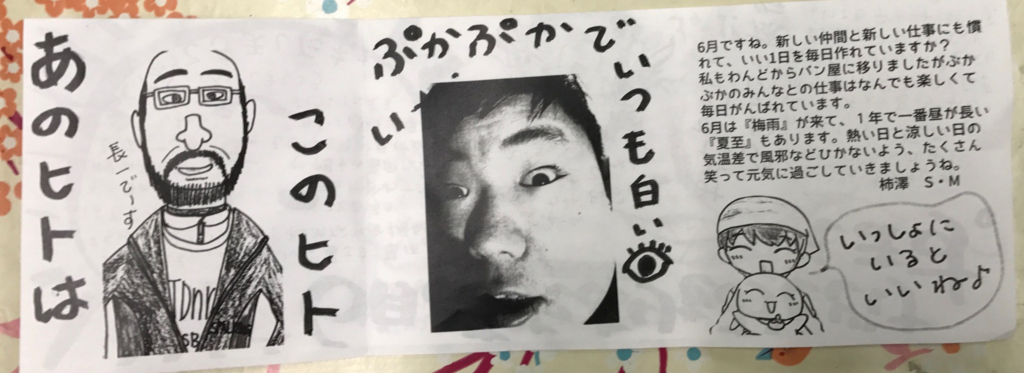 あのヒトは
長一でーす
このヒト
い
ぷかぷかで
いつも白い
6月ですね。新しい仲間と新しい仕事にも慣
れて、いい1日を毎日作れていますか？
私もわんどからパン屋に移りましたがぷか
ぷかのみんなとの仕事はなんでも楽しくて
毎日がんばれています。
6月は『梅雨』が来て、１年で一番昼が長い
『夏至』もあります。熱い日と涼しい日の
気温差で風邪などひかないよう、たくさん
笑って元気に過ごしていきましょうね。
柿澤　S・M
いっしょに
いると
いいねよ